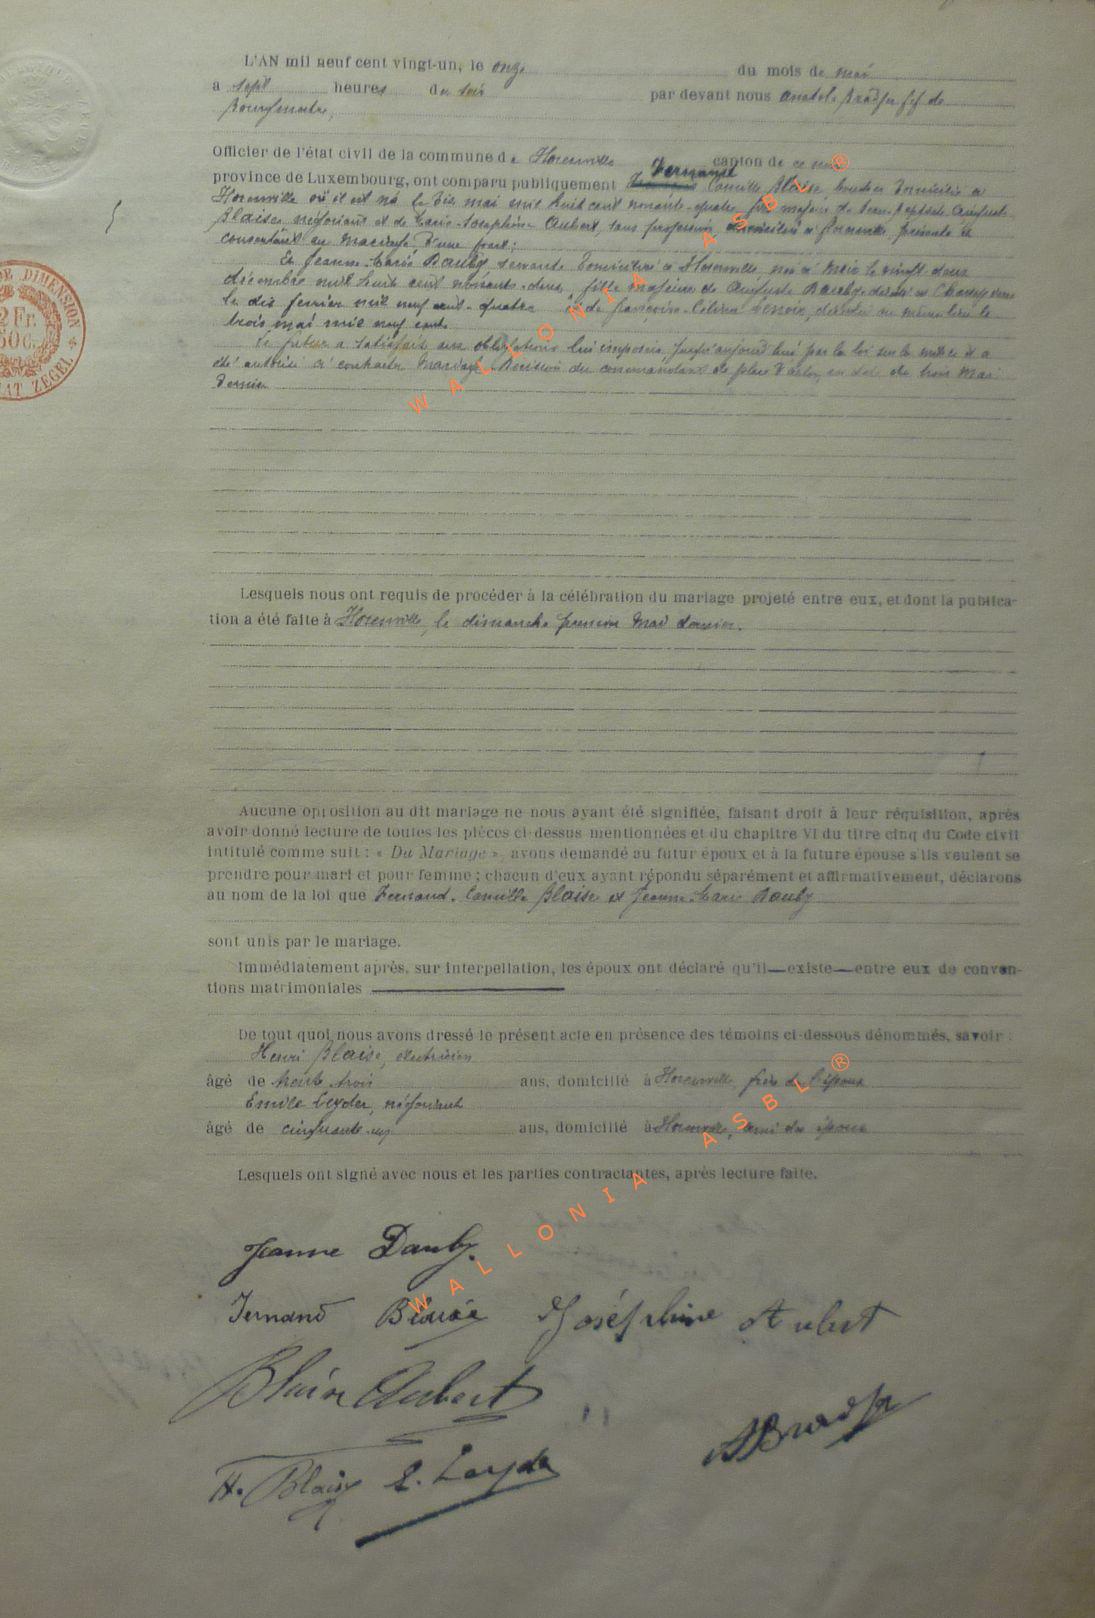 L'AN mil neuf cent vingt-un, le onze du mois de mai
a sept heures du soir par devant nous Anatole
Bourgmestre,
Officier de l'état civil de la commune de Florenville canton de ce nom
province de Luxembourg, ont comparu publiquement Fernand Camille Blaise boucher domicilié à
Florenville où il est né le dix mai mil huit cent nonante-quatre fils majeur de Jean-Baptiste Auguste
Blaise négociant et de Marie-Joséphine Aubert, sans profession, domiciliés à Florenville, présents et
consentant au mariage, d'une part;
Et Jeanne-Marie Dauby servante domiciliée à Florenville, née à le vingt deux
décembre mil huit cent nonante-deux, fille majeure de Auguste Dauby décédé à
le dix février mil neuf cent-quatre et de Françoise-Célérine Lenoir, décédée au même lieu le
trois mai mil neuf cent
Le futur a satisfait aux obligations lui imposées jusqu'aujourd'hui par la loi sur la milice et a
été autorisé à contracter mariage. Décision du commandant de place d'Arlon, en date du trois Mai
dernier
Lesquels nous ont requis de procéder à la célébration du mariage projeté entre eux, et dont la publica-
tion a été faite à Florenville, le dimanche premier Mai dernier.
Aucune opposition au dit mariage ne nous ayant été signifiée, faisant droit à leur réquisition, après
avoir donné lecture de toutes les pièces ci-dessus mentionnées et du chapitre VI du titre cinq du Code civil
intitulé comme suit : « Du Mariage », avons demandé au futur époux et à la future épouse s'ils veulent se
prendre pour mari et pour femme ; chacun d'eux ayant répondu séparément et affirmativement, déclarons
au nom de la loi que Fernand-Camille Blaise et Jeanne-Marie Dauby
sont unis par le mariage.
Immédiatement après, sur interpellation, les époux ont déclaré qu'il—existe—entre eux de conven-
tions matrimoniales
De tout quoi nous avons dressé le présent acte en présence des témoins ci-dessous dénommés, savoir :
Henri Blaise, électricien
âgé de trente trois ans, domicilié à Florenville, frère de l'époux
Emile Leyder, négociant
âgé de cinquante-un ans, domicilié à Florenville, ami des époux
Lesquels ont signé avec nous et les parties contractantes, après lecture faite.
Jeanne Dauby
Fernand Blaise Joséphine Aubert
Blaise Aubert
H. Blaise E. Leyder
DE DIMENSION
2 Fr.
50 C.
ZEGEL
WALLONIA ASBL®
WALLONIA ASBL®